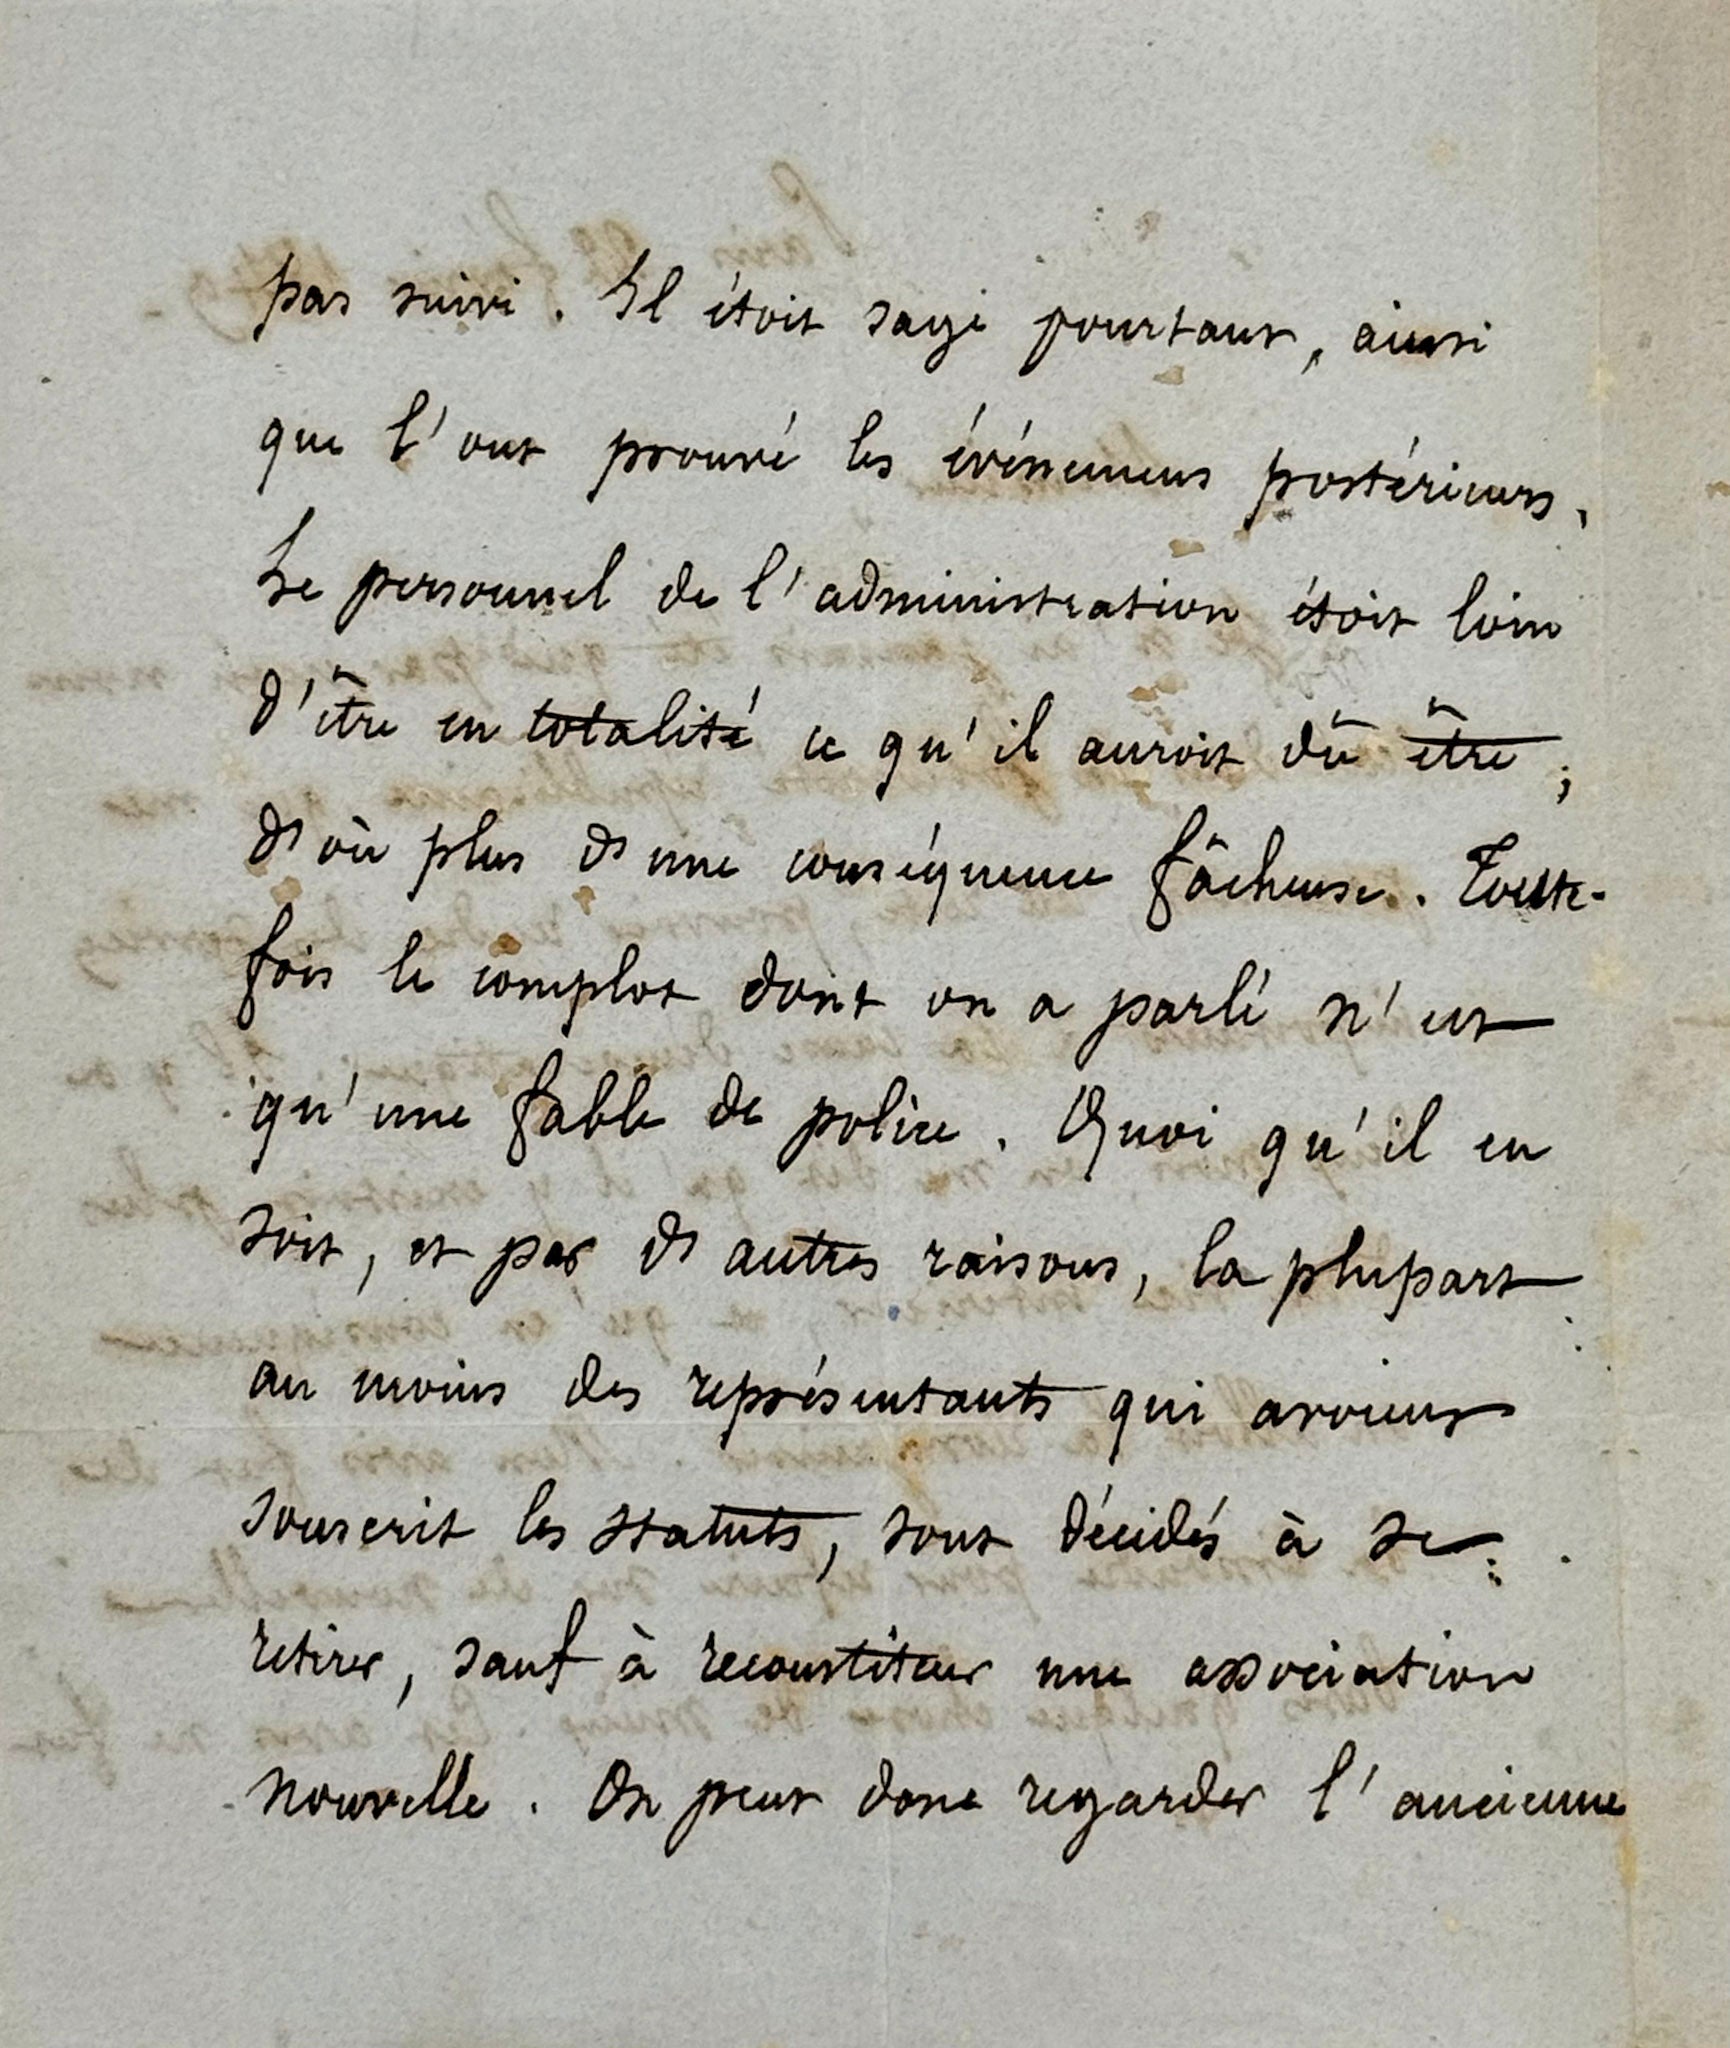 pas suivi. Il étoit sage pourtant, ainsi
que l'ont prouvé les événemens postérieurs.
Le personnel de l'administration étoit loin
d'être en totalité ce qu'il auroit dû être ;
d'où plus d'une conséquence fâcheuse. Toute-
fois le complot dont on a parlé n'est
qu'une fable de police. Quoi qu'il en
soit, et par d'autres raisons, la plupart
au moins des représentants qui avoient
souscrit les statuts, sont décidés à se
retirer, sauf à reconstituer une association
nouvelle. On peut donc regarder l'ancienne